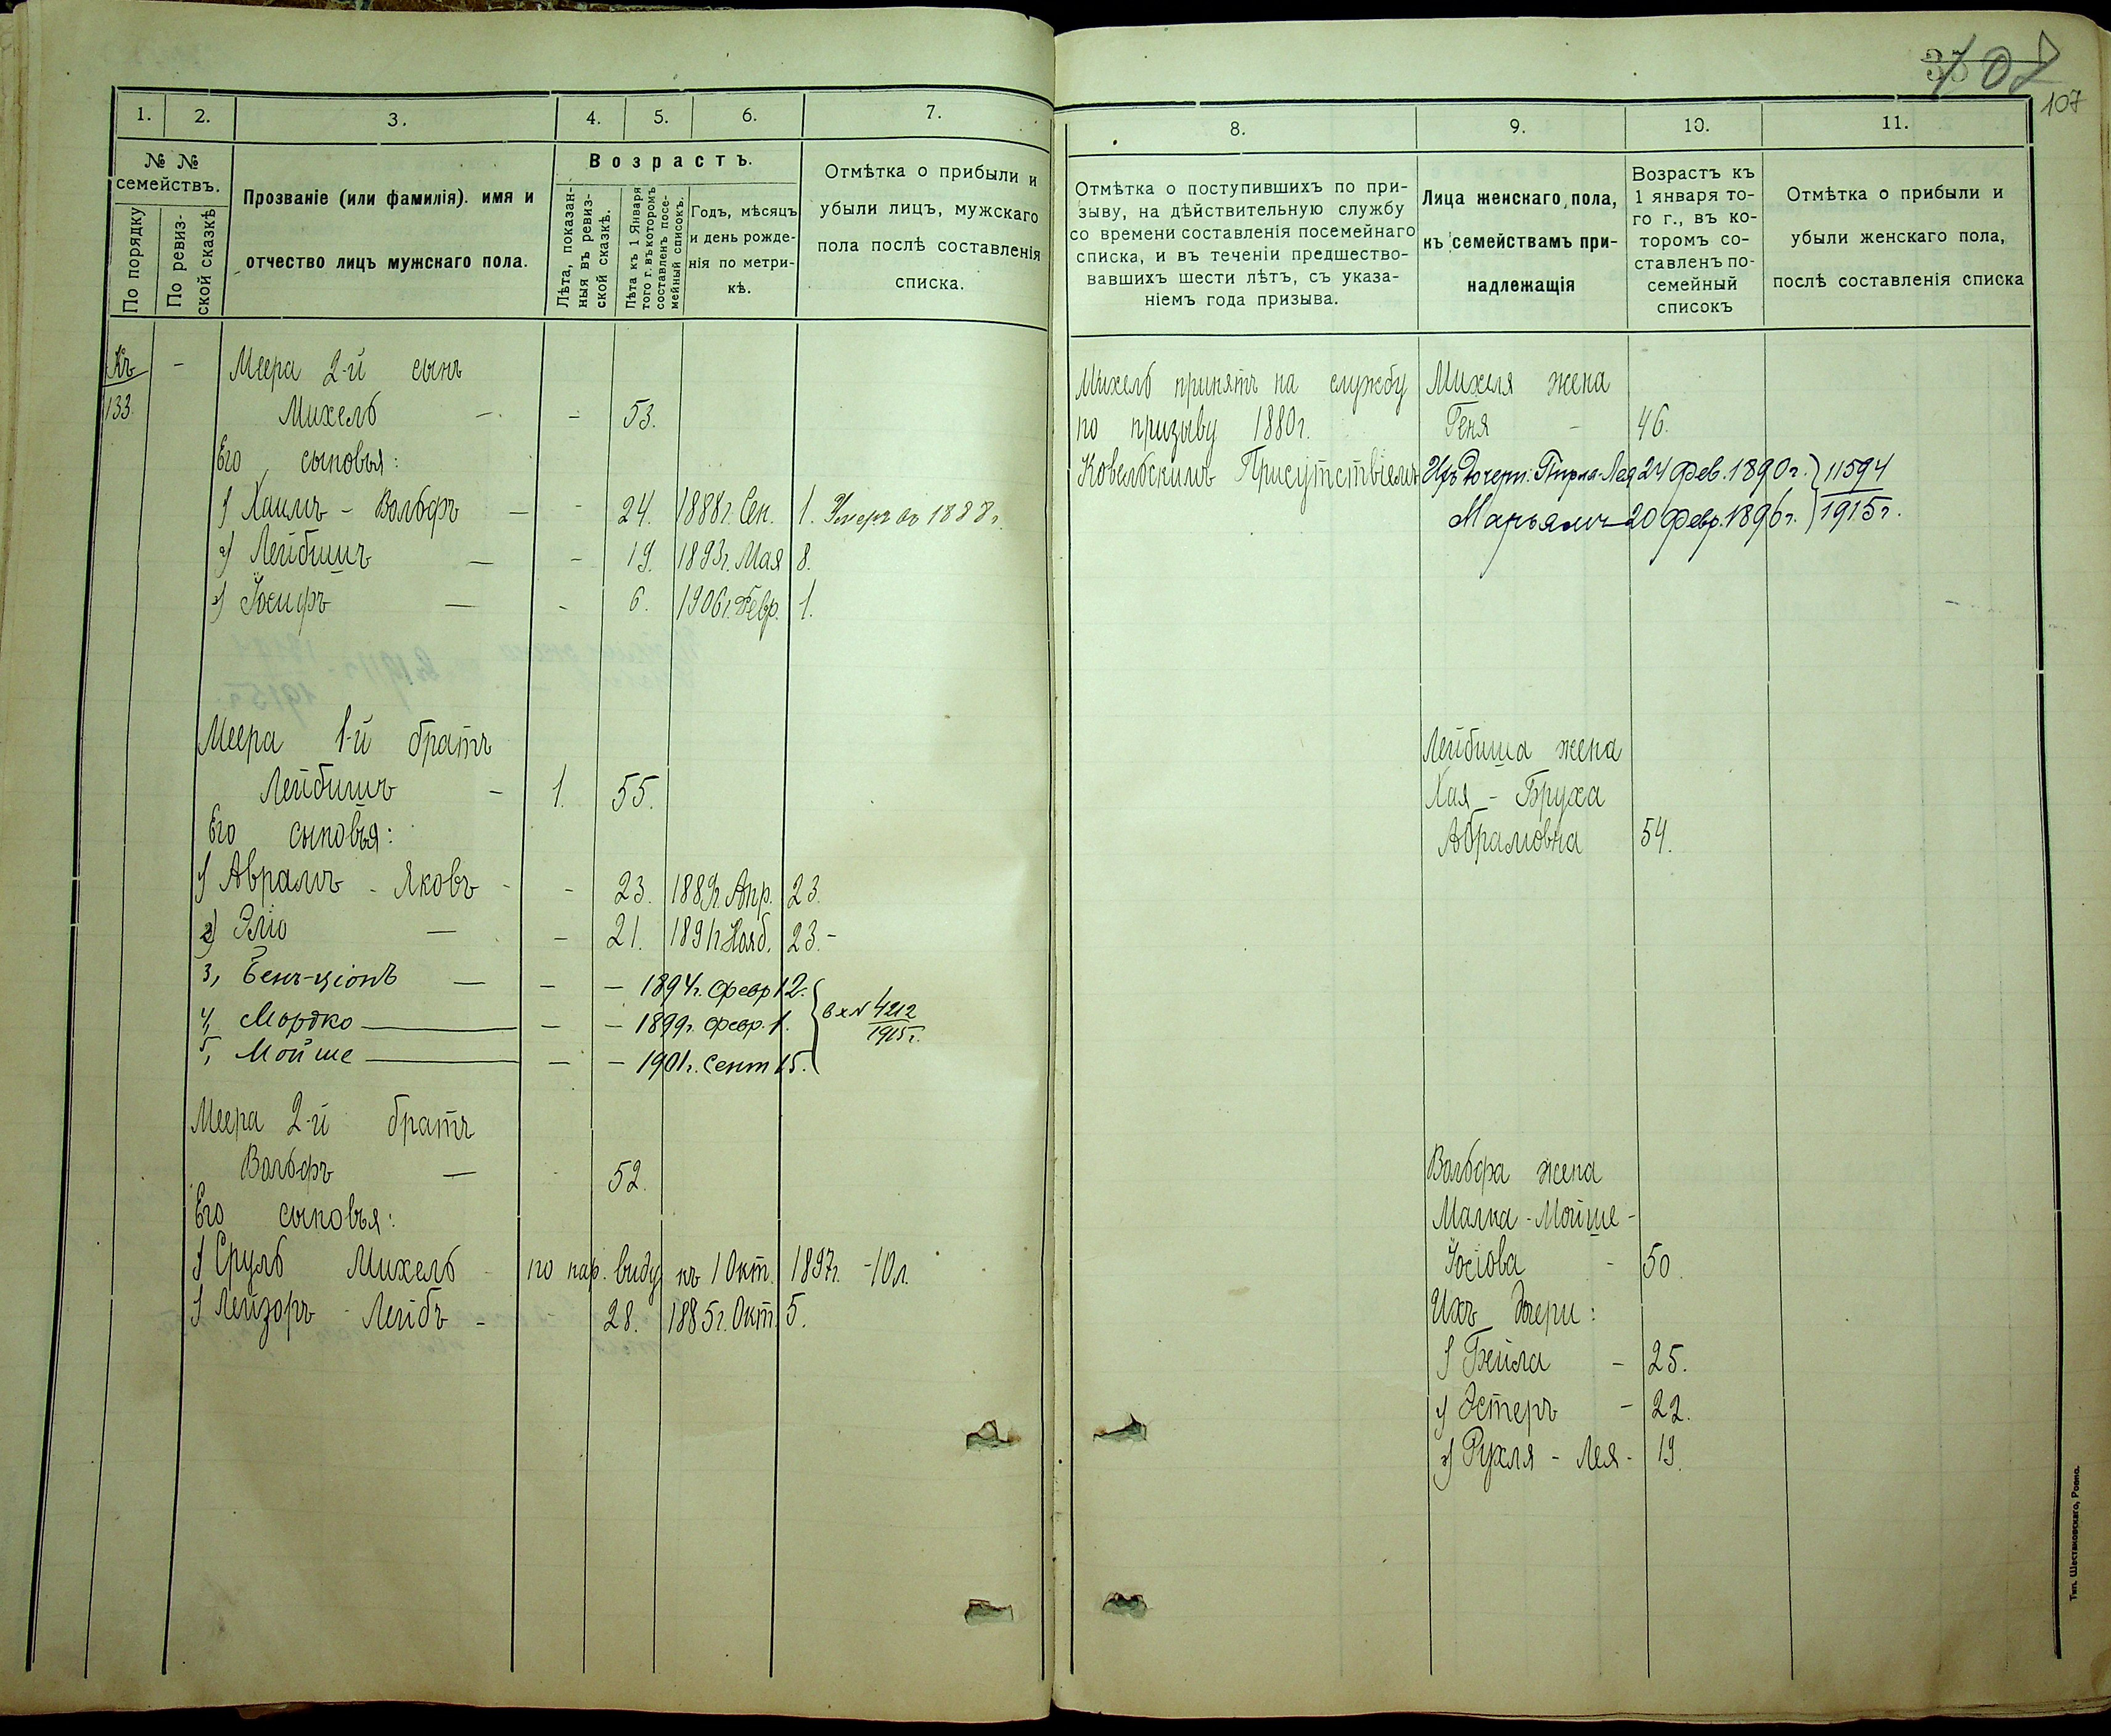 107
1. 2. 3. 4. 5. 6. 7.
№ №
семействъ.
По порядку
По ревиз-
ской сказкѣ
Прозваніе (или фамилія). имя и
отчество лицъ мужскаго пола.
Возрастъ.
Лѣта, показан-
ныя въ ревиз-
ской сказкѣ.
Лѣта къ 1 Января
того г. въ которомъ
составленъ посе-
мейный списокъ.
Годъ, мѣсяцъ
и день рожде-
нія по метри-
кѣ.
Отмѣтка о прибыли и
убыли лицъ, мужскаго
пола послѣ составленія
списка.
Къ
133.
- Меера 2-й сынъ
Михель - - 53.
Его сыновья:
1) Хаимъ - Вольфъ - - 24. 1888г. Сен. 1. Умеръ въ 1888г.
2) Лейбишъ - - 19. 1893г. Мая 8.
3) Іосифъ - - 6. 1906г. Февр. 1.
Меера 1-й братъ
Лейбишъ - 1. 55.
Его сыновья:
1) Аврамъ - Яковъ - - 23. 1889г. Апр. 23.
2) Эліо - - 21. 1891г. Нояб. 23. -
3, Бенъ-ціонъ - - - 1894г. февр 12.
4, Мордко - - - 1899г. февр. 1. вх№ 4212
1915г.
5, Мойше - - - 1901г. Сент 15.
Меера 2-й братъ
Вольфъ - - 52.
Его сыновья:
1) Сруль Михель - по нар. виду къ 1 Окт. 1897г. - 10 л.
1) Лейзоръ - Лейбъ - 28. 1885г. Окт. 5.
8. 9. 10. 11.
Отмѣтка о поступившихъ по при-
зыву, на дѣйствительную службу
со времени составленія посемейнаго
списка, и въ теченіи предшество-
вавшихъ шести лѣтъ, съ указа-
ніемъ года призыва.
Лица женскаго пола,
къ семействамъ при-
надлежащія
Возрастъ къ
1 января то-
го г., въ ко-
торомъ со-
ставленъ по-
семейный
списокъ
Отмѣтка о прибыли и
убыли женскаго пола,
послѣ составленія списка
Михель принятъ на службу
по призыву 1880г.
Ковельскимъ Присутствіемъ
Михеля жена
Геня - 46.
Ихъ дочери: Пирля-Лея 24 фев. 1890г. 11594
Марьямъ 20 февр. 1896г. 1915г.
Лейбиша жена
Хая - Бруха
Абрамовна 54.
Вольфа жена
Малка - Мойше -
Іосіова - 50.
Ихъ дочери:
1) Бейла - 25.
2) Эстеръ - 22.
3) Рухля - Лея - 19.
Тип. Шестаковскаго, Ровно.